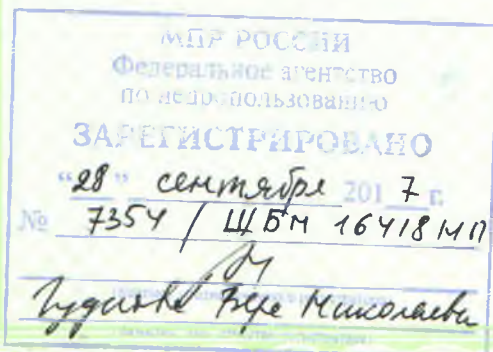 МПР РОССИИ
Федеральное агентство
по недропользованию
ЗАРЕГИСТРИРОВАНО
"28" сентября 2017 г.
№ 7354 / ШБМ 16418 МП
Вере Николаевн